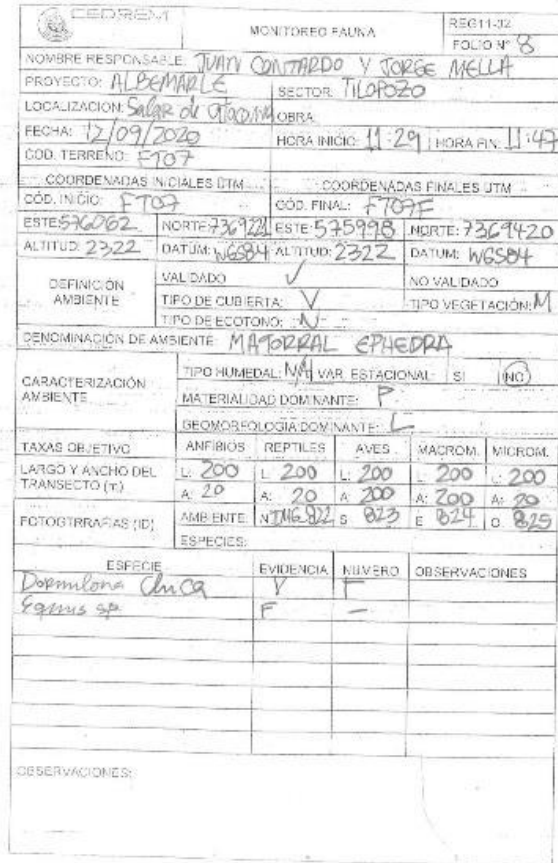 CEDREM
MONITOREO FAUNA
REG11-02
FOLIO N° 8
NOMBRE RESPONSABLE: JUAN CONTARDO Y JORGE MELLA
PROYECTO: ALBEMARLE SECTOR: TILOPOZO
LOCALIZACION: Salar de Atacama OBRA:
FECHA: 12/09/2020 HORA INICIO: 11:29 HORA FIN: 11:47
COD. TERRENO: FT07
COORDENADAS INICIALES UTM COORDENADAS FINALES UTM
CÓD. INICIO: FT07 COD. FINAL: FT07F
ESTE: 576062 NORTE: 7369221 ESTE: 575998 NORTE: 7369420
ALTITUD: 2322 DATUM: WGS84 ALTITUD: 2322 DATUM: WGS84
DEFINICIÓN AMBIENTE VALIDADO ✓ NO VALIDADO
TIPO DE CUBIERTA: V TIPO VEGETACIÓN: M
TIPO DE ECOTONO: N
DENOMINACIÓN DE AMBIENTE: MATORRAL EPHEDRA
CARACTERIZACIÓN AMBIENTE TIPO HUMEDAL: VAR. ESTACIONAL: SI NO
MATERIALIDAD DOMINANTE: P
GEOMORFOLOGIA DOMINANTE: L
TAXAS OBJETIVO ANFIBIOS REPTILES AVES MACROM. MICROM.
LARGO Y ANCHO DEL TRANSECTO (m) L: 200 L: 200 L: 200 L: 200 L: 200
A: 20 A: 20 A: 200 A: 200 A: 20
FOTOGTRRAFIAS (ID) AMBIENTE N IMG_822 S 823 E 824 O 825
ESPECIES:
ESPECIE EVIDENCIA NUMERO OBSERVACIONES
Dormilona Chica V
Equus sp F –
OBSERVACIONES: